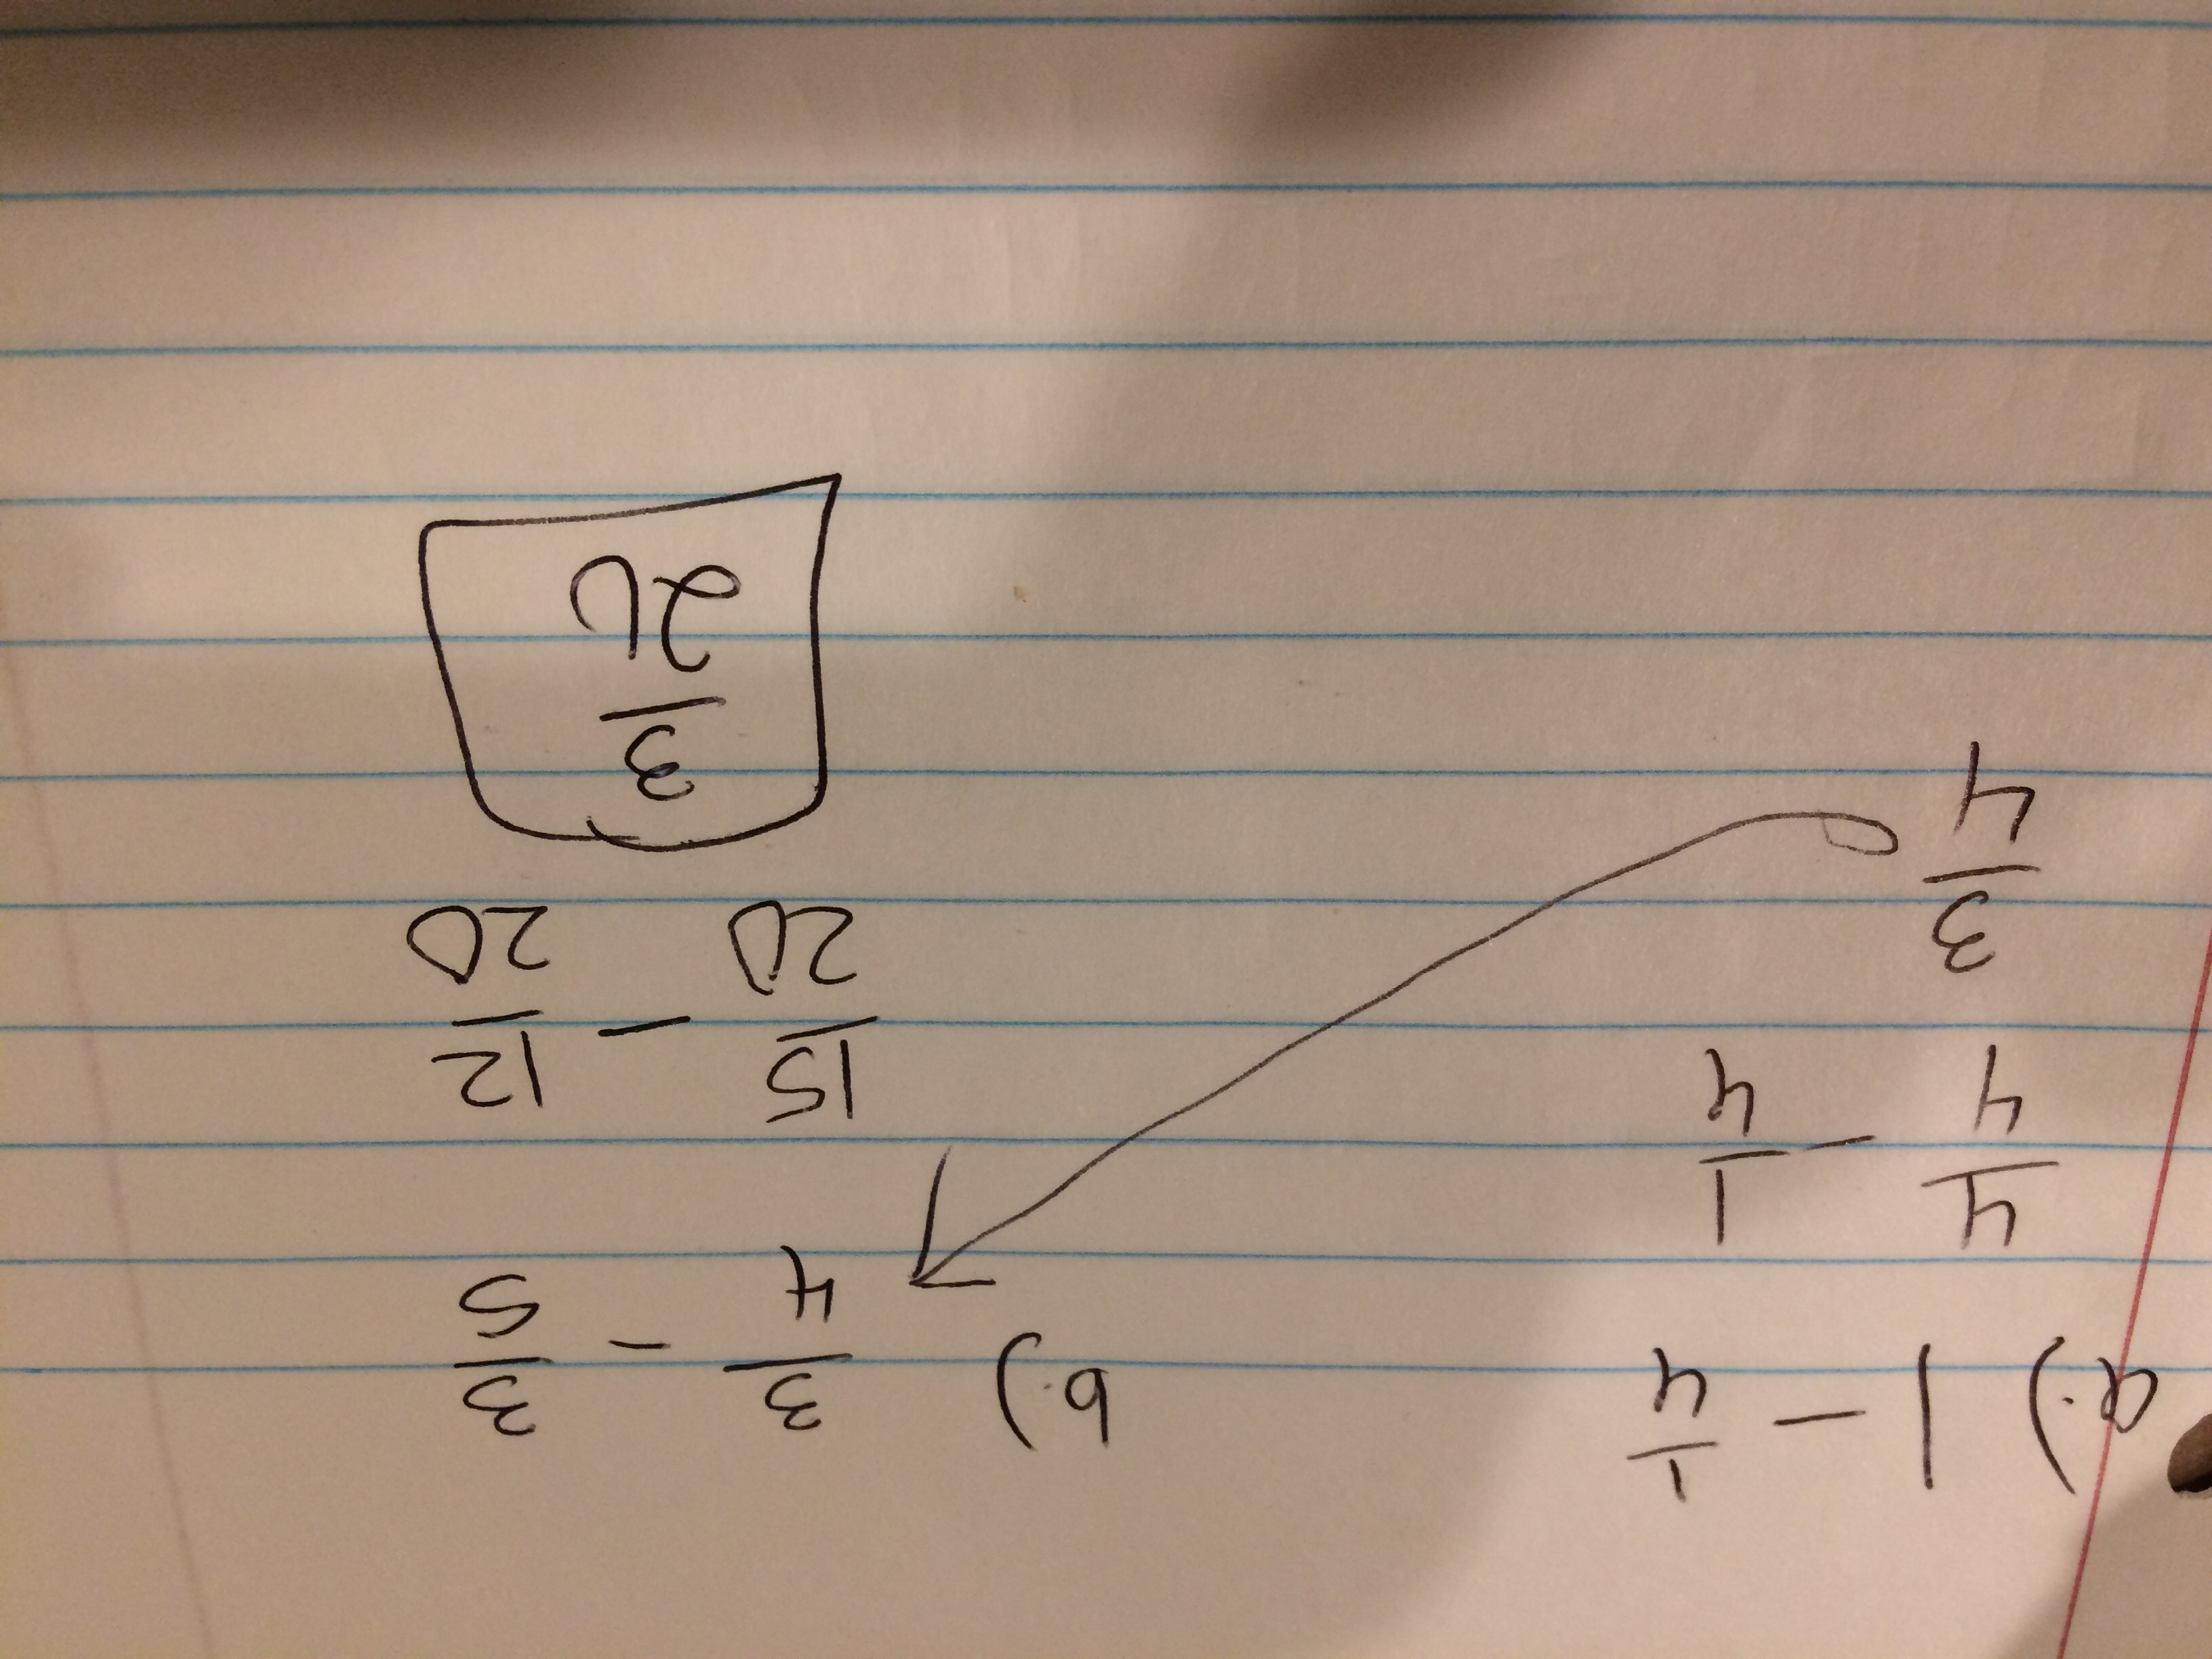 a.) 1 - 1/4
4/4 - 1/4
3/4
b.) 3/4 - 3/5
15/20 - 12/20
3/20